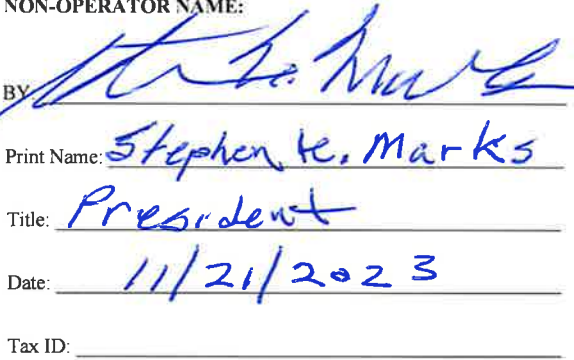 NON-OPERATOR NAME:
BY
Print Name: Stephen Marks
Title: President
Date: 11/21/2023
Tax ID: